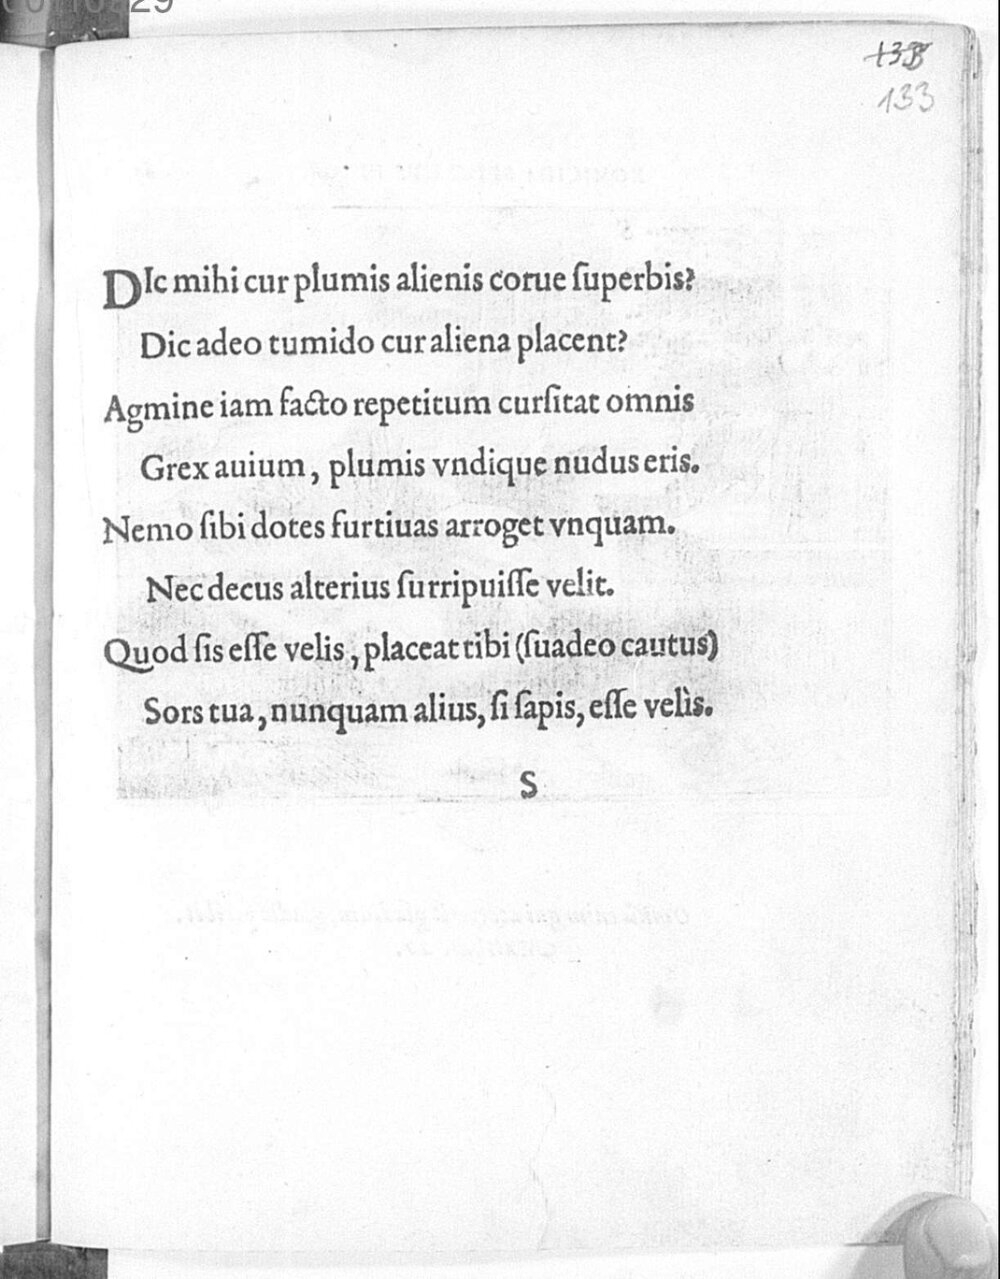 133
DIc mihi cur plumis alienis corue ſuperbis?
Dic adeo tumido cur aliena placent?
Agmine iam facto repetitum curſitat omnis
Grex auium, plumis vndique nudus eris.
Nemo ſibi dotes furtiuas arroget vnquam.
Nec decus alterius ſurripuiſſe velit.
Quod ſis eſſe velis, placeat tibi (ſuadeo cautus)
Sors tua, nunquam alius, ſi ſapis, eſſe velìs.
S